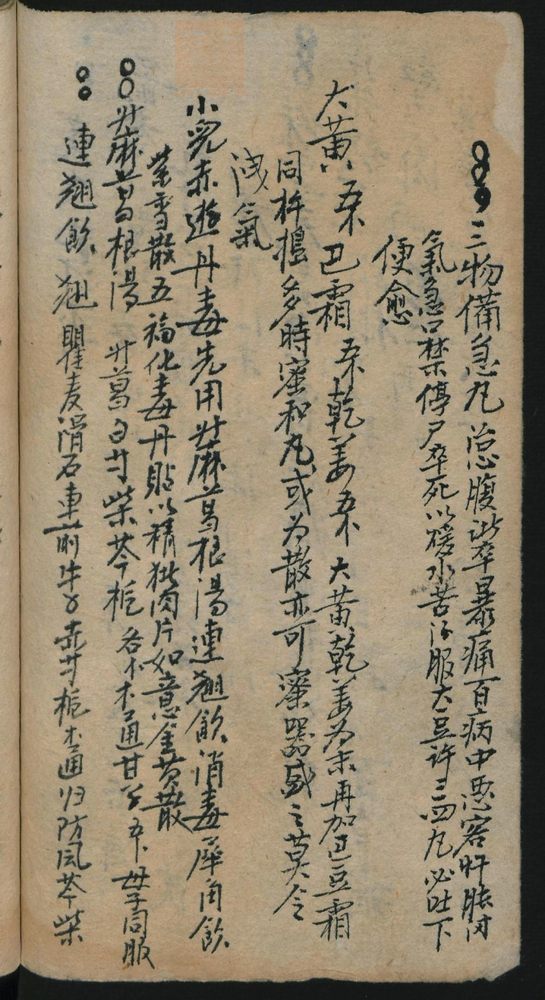 三物備急丸 心腹諸卒暴痛百病中悪客忤脹満
氣急口禁停尸卒死以煖水苦酒服大豆許三四丸必吐下
便愈
大黃 五分 巴霜 五分 乾姜 五分 大黃乾姜為末再加巴豆霜
同杵搗多時蜜和丸或為散亦可蜜器盛之莫令
洩氣
小兒赤遊丹毒先用升麻葛根湯連翹飲消毒犀角飲
紫雪散五福化毒丹貼以精猪肉片如意金黃散
升麻葛根湯 升葛白芍柴芩梔各 木通甘 母子同服
連翹飲 翹瞿麦滑石車前牛子赤芍梔木通归防風芩柴